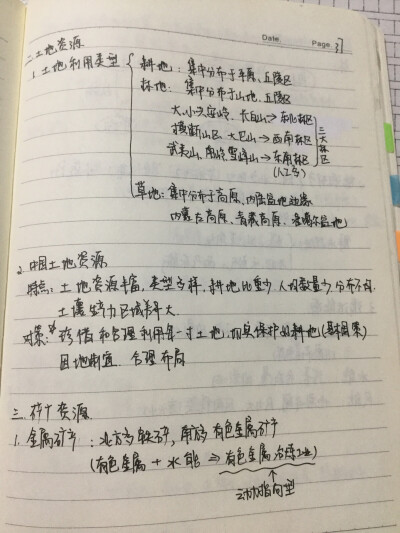 Date. Page. 37
二.土地资源
1.土地利用类型
耕地:集中分布于平原、丘陵区
林地:集中分布于山地、丘陵区
大、小兴安岭、长白山→东北林区
横断山区、大巴山→西南林区
武夷山、南岭、雪峰山→东南林区
(人工多)
三大林区
草地:集中分布于高原、内陆盆地边缘
内蒙古高原、青藏高原、准噶尔盆地
2.中国土地资源
特点:土地资源丰富,类型多样,耕地比重少,人均数量少,分布不均,
土壤生产力区域差异大
对策:珍惜和合理利用每一寸土地,切实保护好耕地(基本国策)
因地制宜 合理布局
三.矿产资源
1.金属矿产:北方多铁矿,南方多有色金属矿产
(有色金属+水能⇒有色金属冶炼工业)
动力指向型